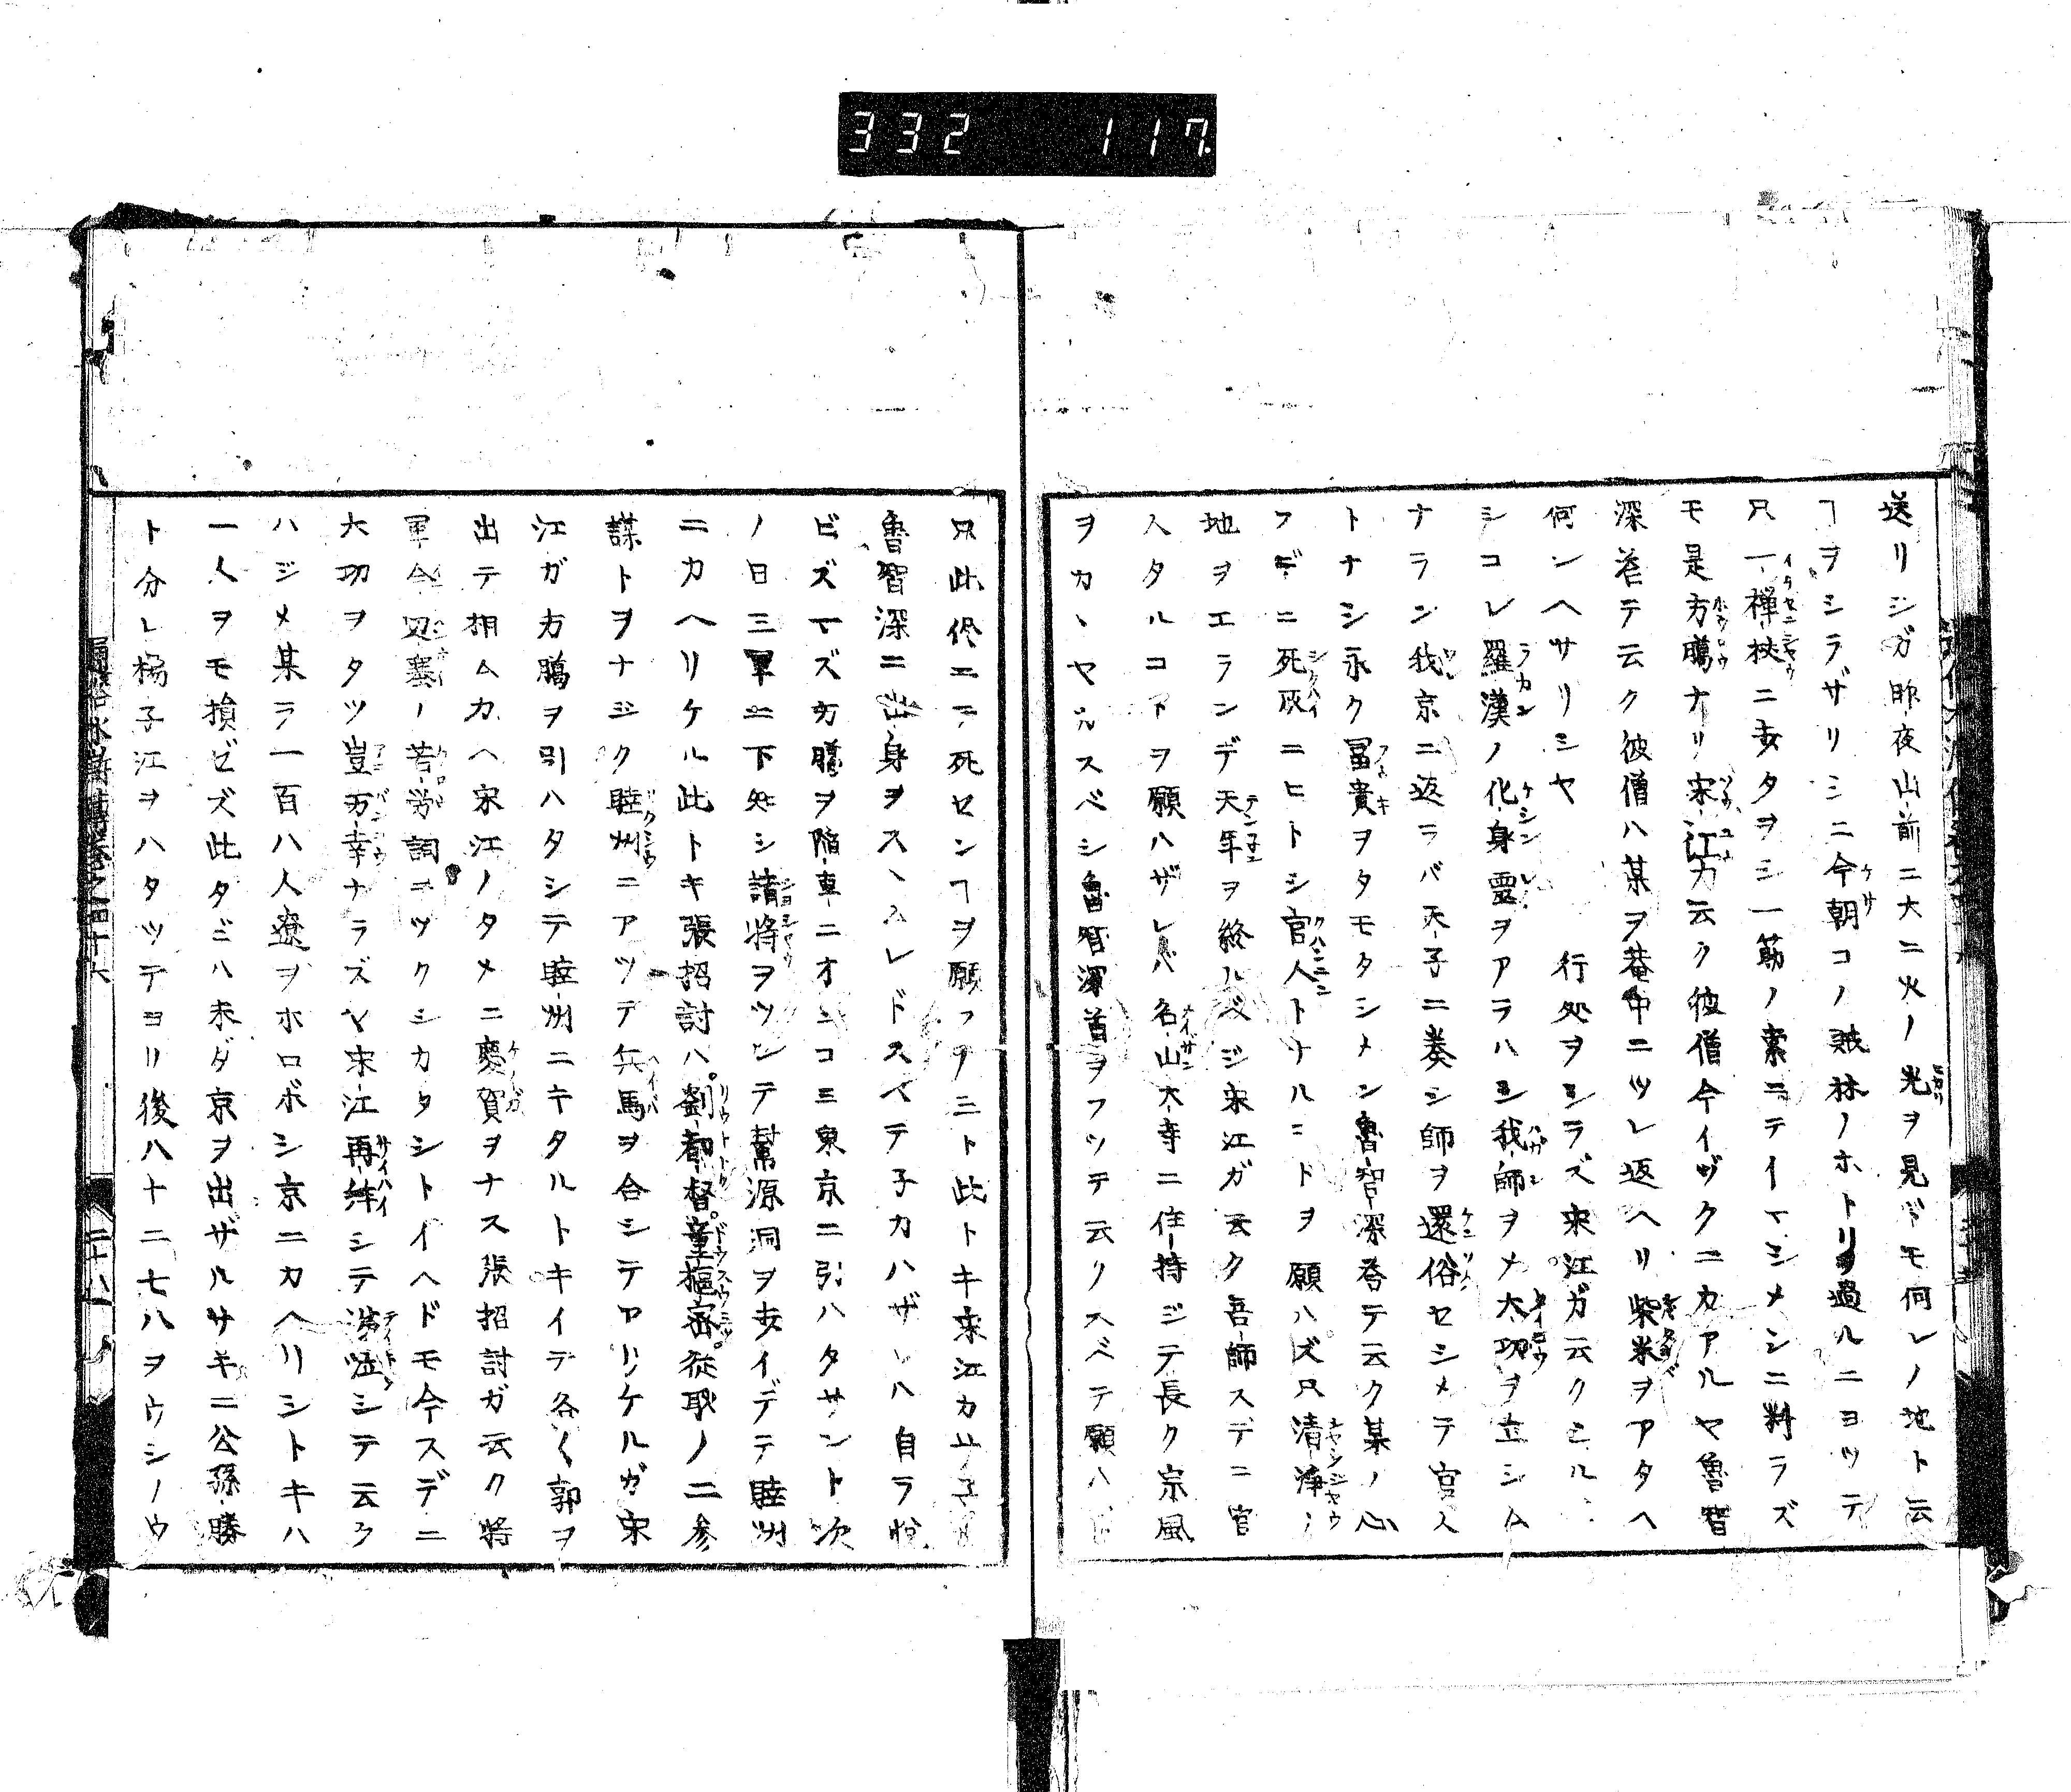 332 117
送リシガ昨夜山前ニ大ニ火ノ光ヲ見ドモ何レノ地ト云
ヿヲシラザリシニ今朝コノ賊林ノホトリヲ過ルニヨツテ
只一禅杖ニ走タヲシ一筋ノ索ニテイマシメシニ料ラズ
モ是方臘ナリ宋江カ云ク彼僧今イヅクニカアルヤ魯智
深荅テ云ク彼僧ハ某ヲ菴中ニツレ返ヘリ柴米ヲアタヘ
何ンヘサリシヤ 行処ヲシラズ宋江ガ云ク
シコレ羅漢ノ化身霊ヲアラハシ我師ヲメ大功ヲ立シム
ナラン我京ニ返ラバ天子ニ奏シ師ヲ還俗セシメテ官人
トナシ永ク冨貴ヲタモタシメン魯智深荅テ云ク某ノ心
スデニ死灰ニヒトシ官人トナルコトヲ願ハズ只清浄ノ
地ヲエランデ天年ヲ終ルベシ宋江ガ云ク吾師スデニ官
人タルコトヲ願ハザレバ名山大寺ニ住持ジテ長ク宗風
ヲカヽヤカスベシ魯智深首ヲフツテ云クスベテ願ハ
只此侭ニテ死センヿヲ願フノミト此トキ宋江カ
魯智深ニ出身ヲスヽムレドスベテ子カハザレハ自ラ悦
ビズマズ方臘ヲ陥車ニオシコミ東京ニ引ハタサント次
ノ日三軍ニ下知シ諸将ヲツレテ幫源洞ヲ出イデテ睦州
ニカヘリケル此トキ張招討ハ劉都督童樞密従耿ノ二参
謀トヲナジク睦州ニアツテ兵馬ヲ合シテアリケルガ宋
江ガ方臘ヲ引ハタシテ睦州ニキタルトキイテ各〱郭ヲ
出テ相ムカヘ宋江ノタメニ慶賀ヲナス張招討ガ云ク将
軍今辺塞ノ苦労詞ニツクシカタシトイヘドモ今スデニ
大功ヲタツ豈万幸ナラズヤ宋江再拝シテ涕泣シテ云ク
ハジメ某ラ一百八人遼ヲホロボシ京ニカヘリシトキハ
一人ヲモ損ビズ此タビハ未ダ京ヲ出ザルサキニ公孫勝
ト分レ楊子江ヲハタツテヨリ後ハ十ニ七八ヲウシノウ